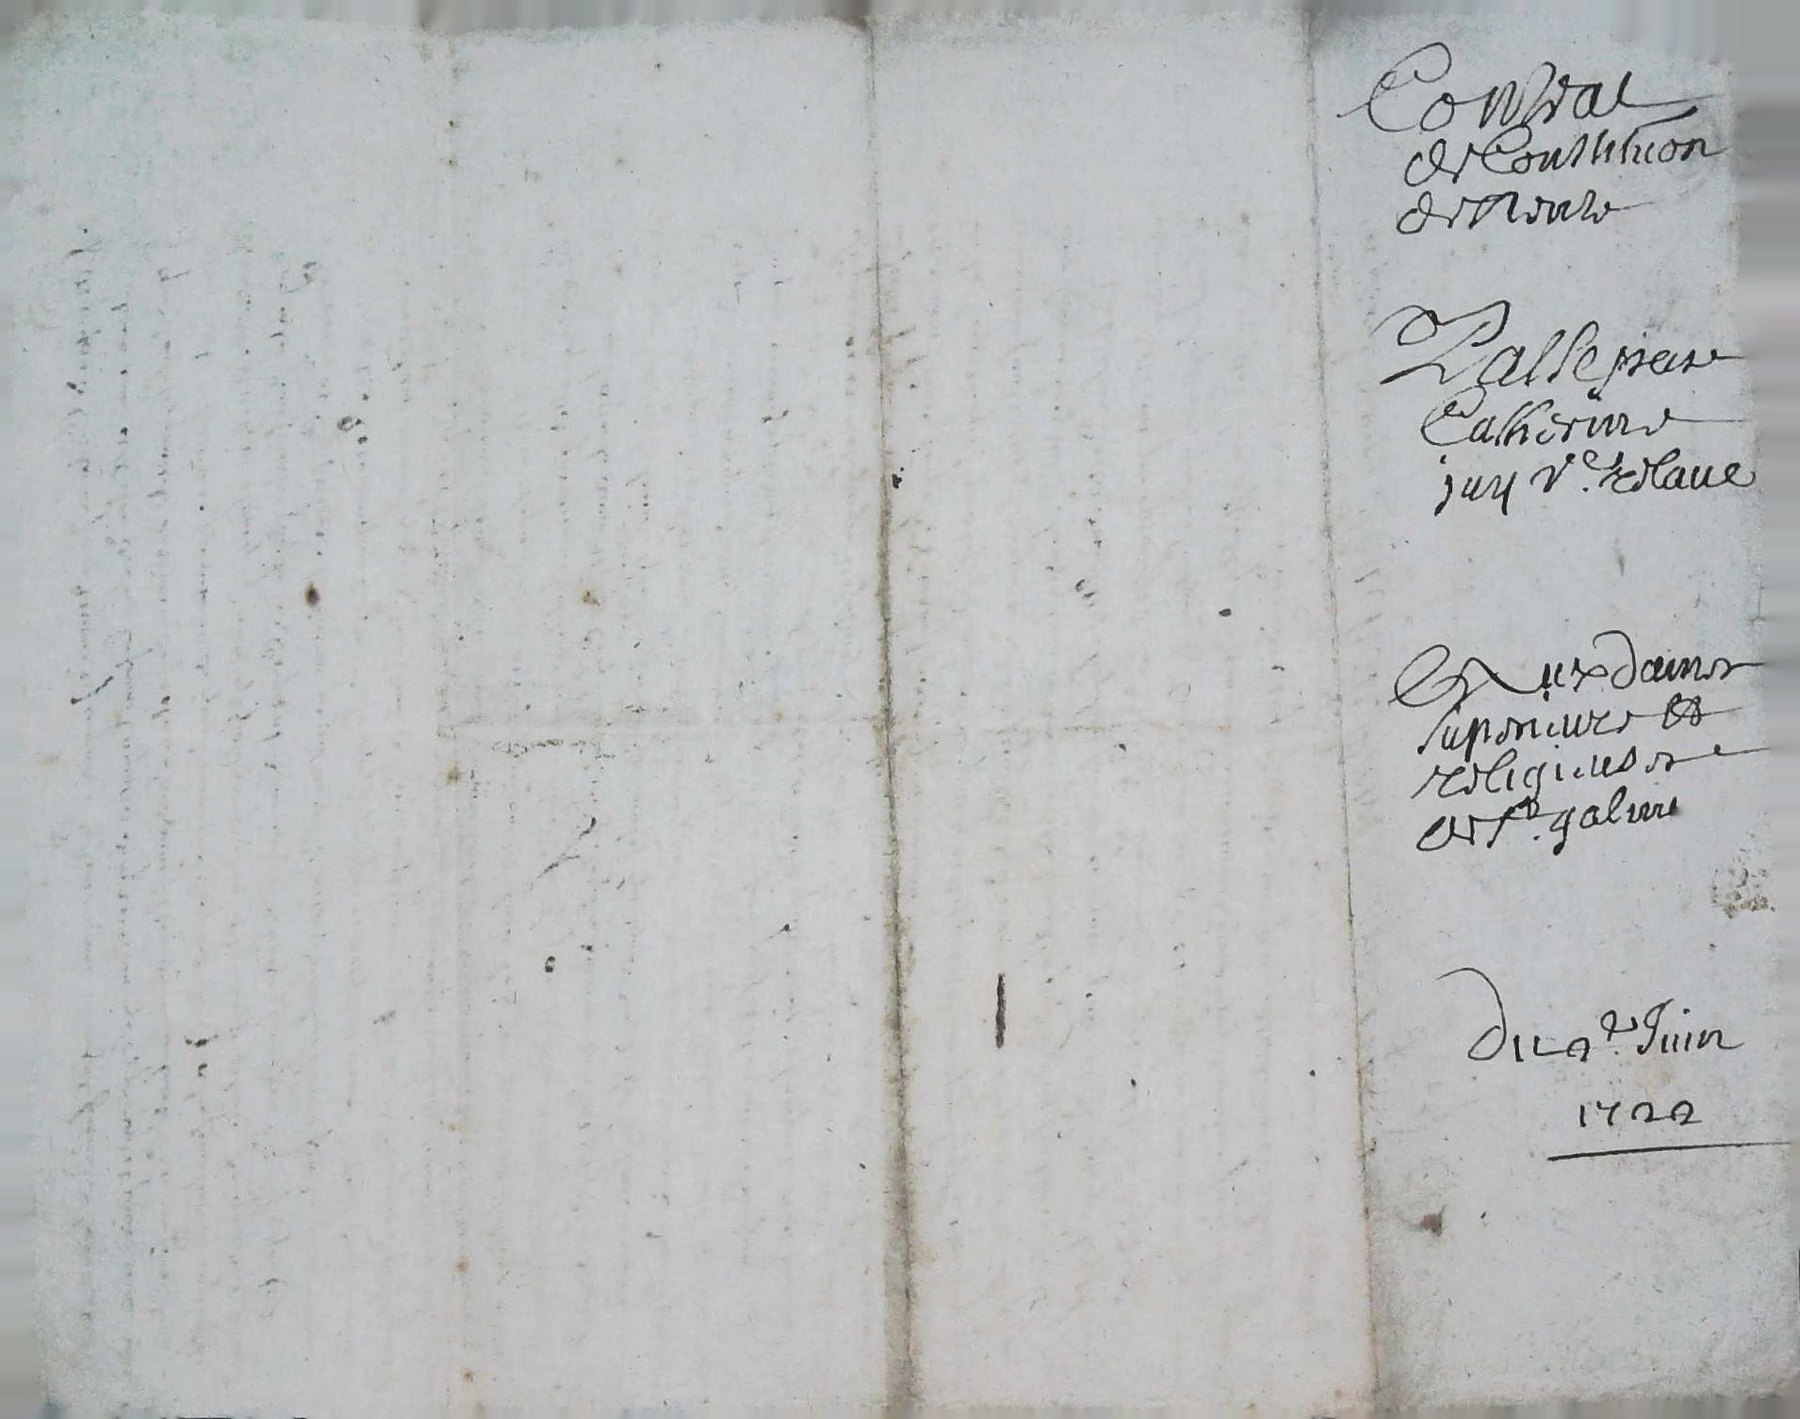 Contrat
de Constitution
de Rente
Passe par
Catherine
jury Ve. relave
Aux dames
superieure et
religieuses
de St. galmi
Du 2e Juin
1722